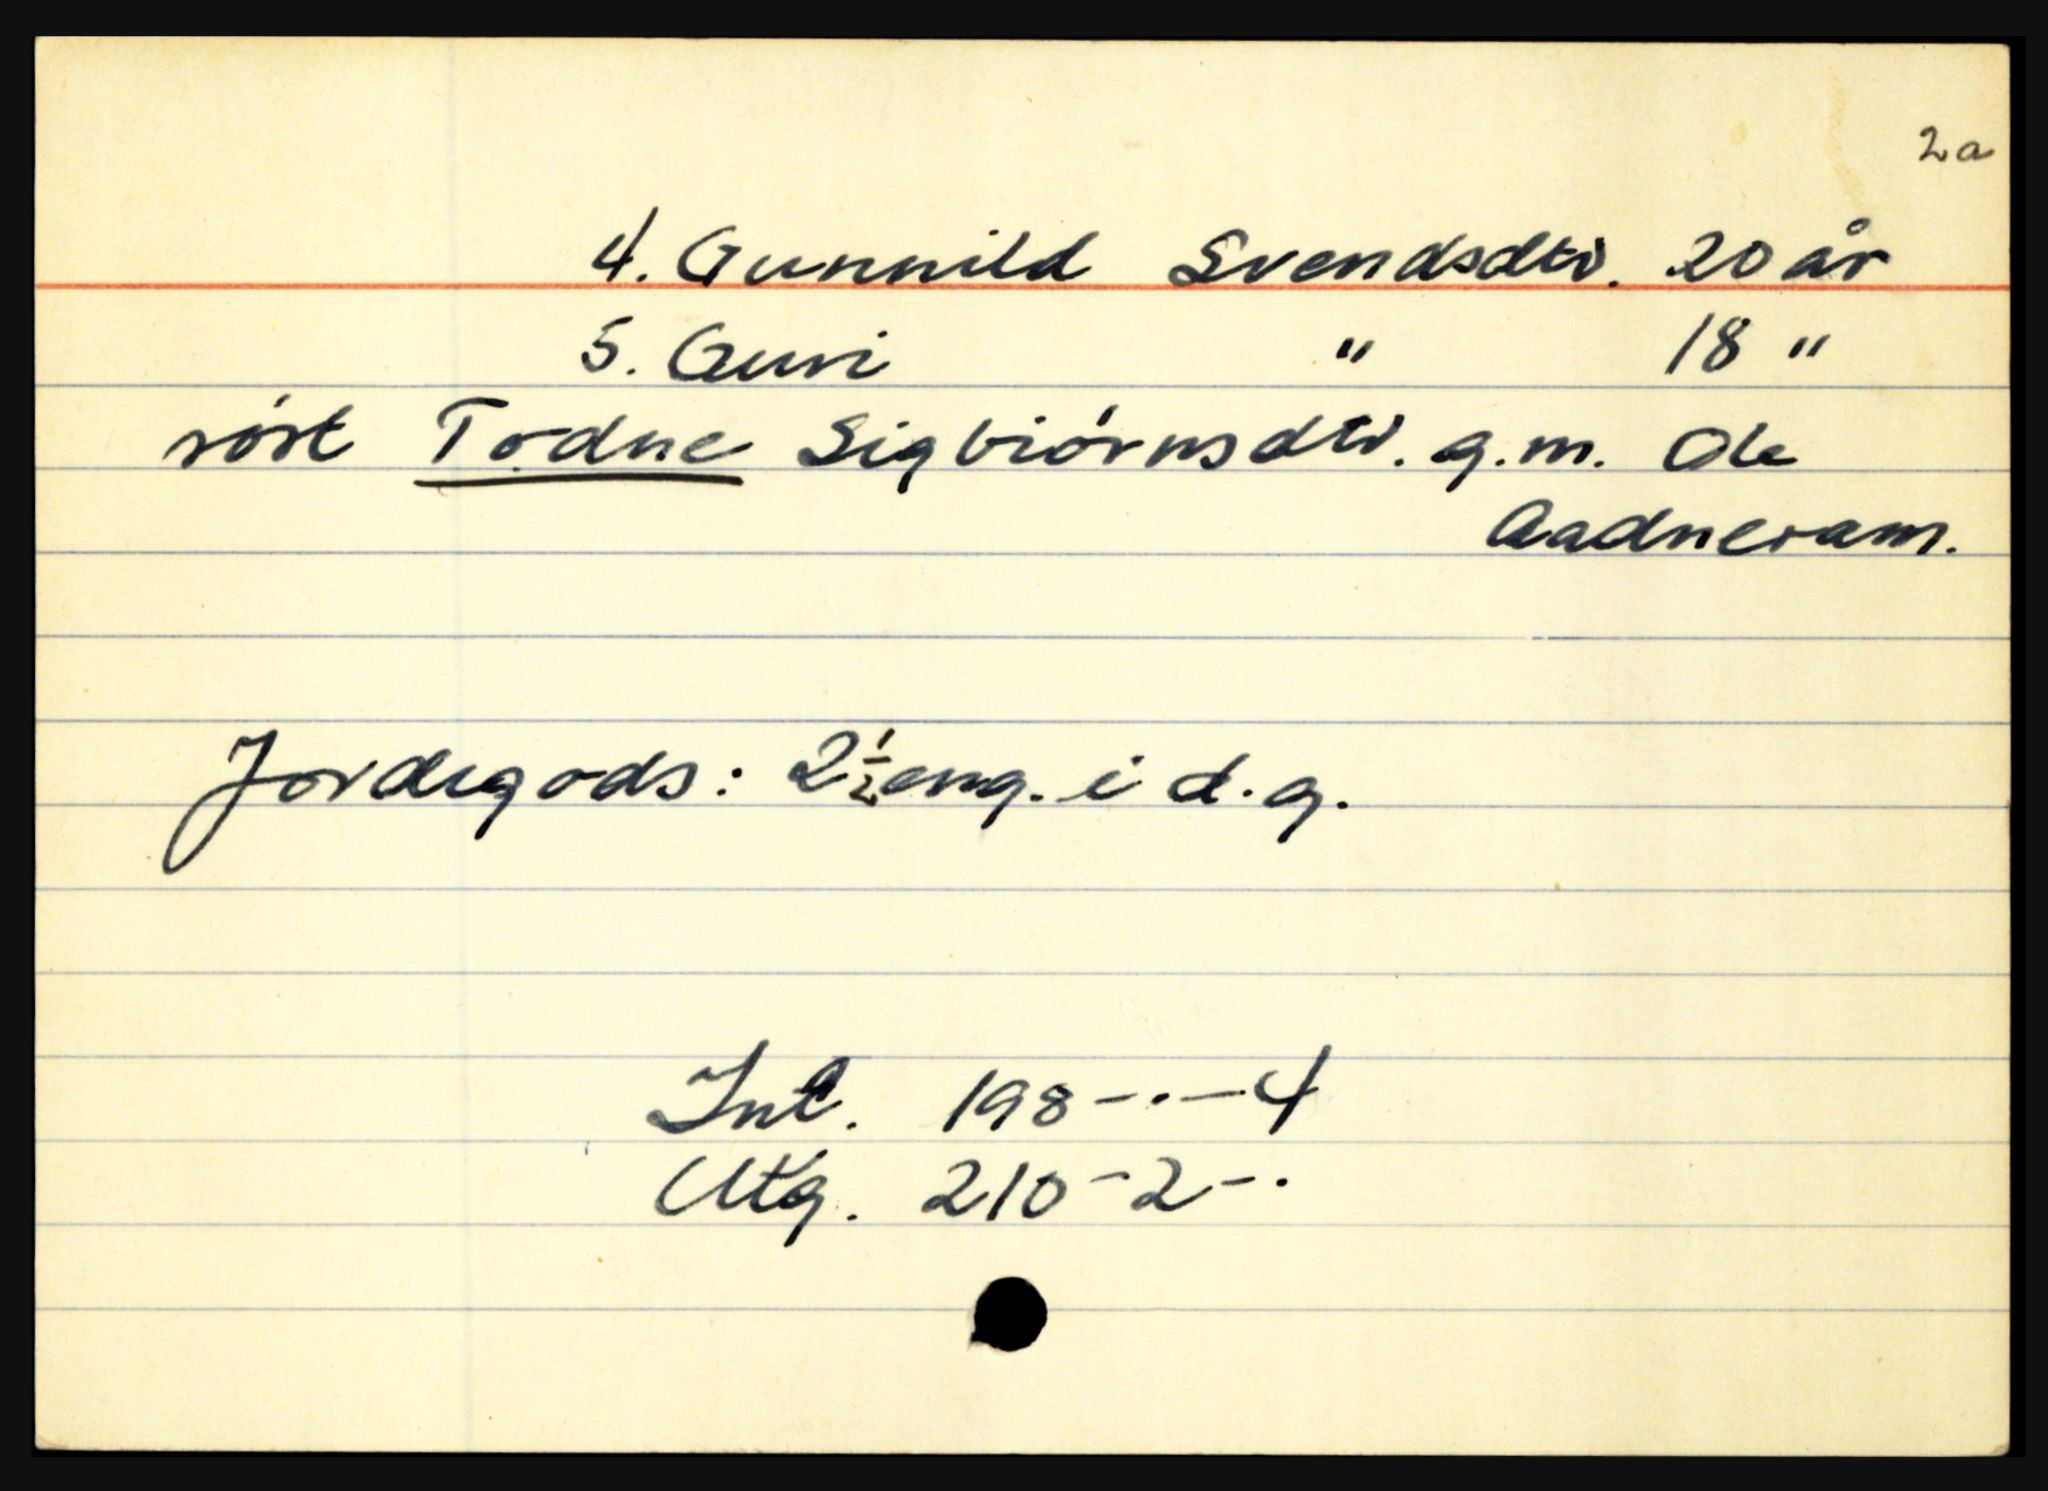 2a
4. Gunnild Svendsdtr. 20 år
5. Guri " 18 "
søst Todne Sigbiørnsdtr. g.m. Ole
Aadneram.
Jordegods: 2½ eng. i d.g.
Int. 198-.-4
Utg. 210-2-.